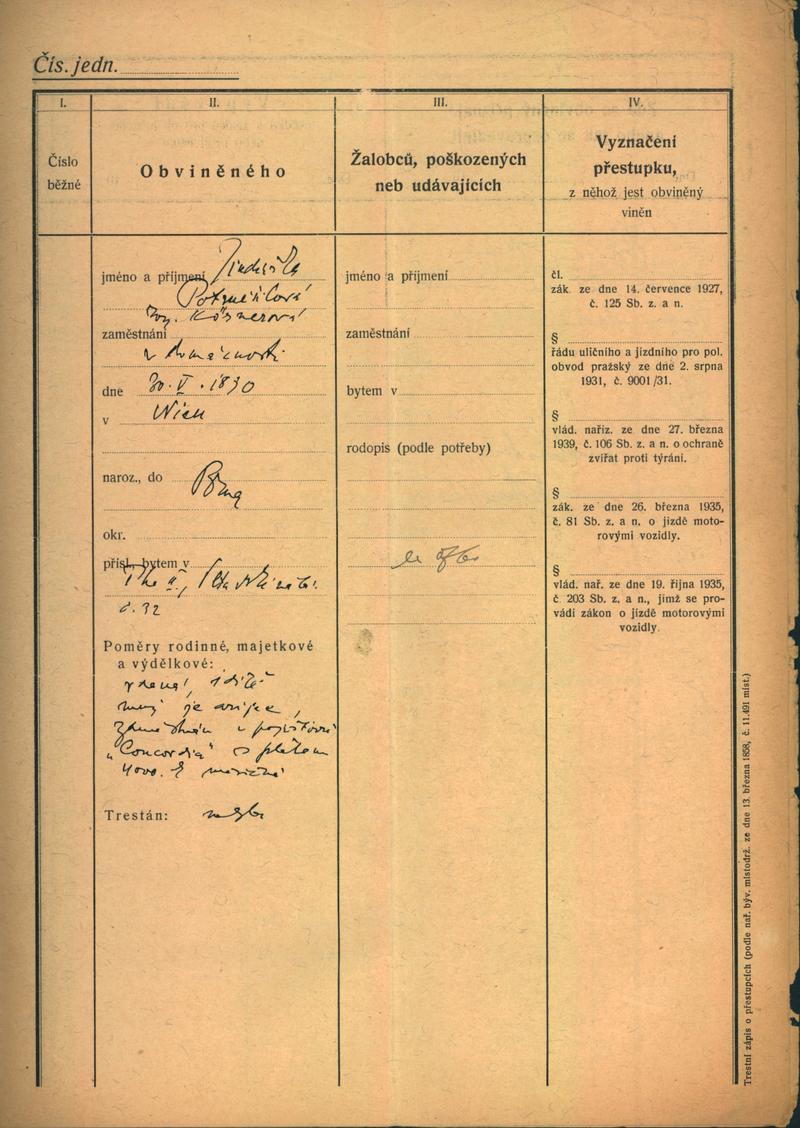 Čís. jedn.
I.
Číslo
běžné
II.
Obviněného
III.
Žalobců, poškozených
neb udávajících
IV.
Vyznačení
přestupku,
z něhož jest obviněný
viněn
jméno a příjmení
zaměstnání
v domácnosti
dne 30. V. 1890
v Wien
naroz., do Prag
okr.
přísl., bytem v
č. 32
Poměry rodinné, majetkové
a výdělkové:
vdaná, 1 dítě
muž je
"Concordia" s platem
4000. K měsíčně
Trestán:
jméno a příjmení
zaměstnání
bytem v
rodopis (podle potřeby)
čl.
zák. ze dne 14. července 1927,
č. 125 Sb. z. a n.
§
řádu uličního a jízdního pro pol.
obvod pražský ze dne 2. srpna
1931, č. 9001/31.
§
vlád. nařiz. ze dne 27. března
1939, č. 106 Sb. z. a n. o ochraně
zvířat proti týrání.
§
zák. ze dne 26. března 1935,
č. 81 Sb. z. a n. o jízdě moto-
rovými vozidly.
§
vlád. nař. ze dne 19. října 1935,
č. 203 Sb. z. a n., jímž se pro-
vádí zákon o jízdě motorovými
vozidly.
Trestní zápis o přestupcích (podle nař. býv. místodrž. ze dne 13. března 1858, č. 11.491 míst.)